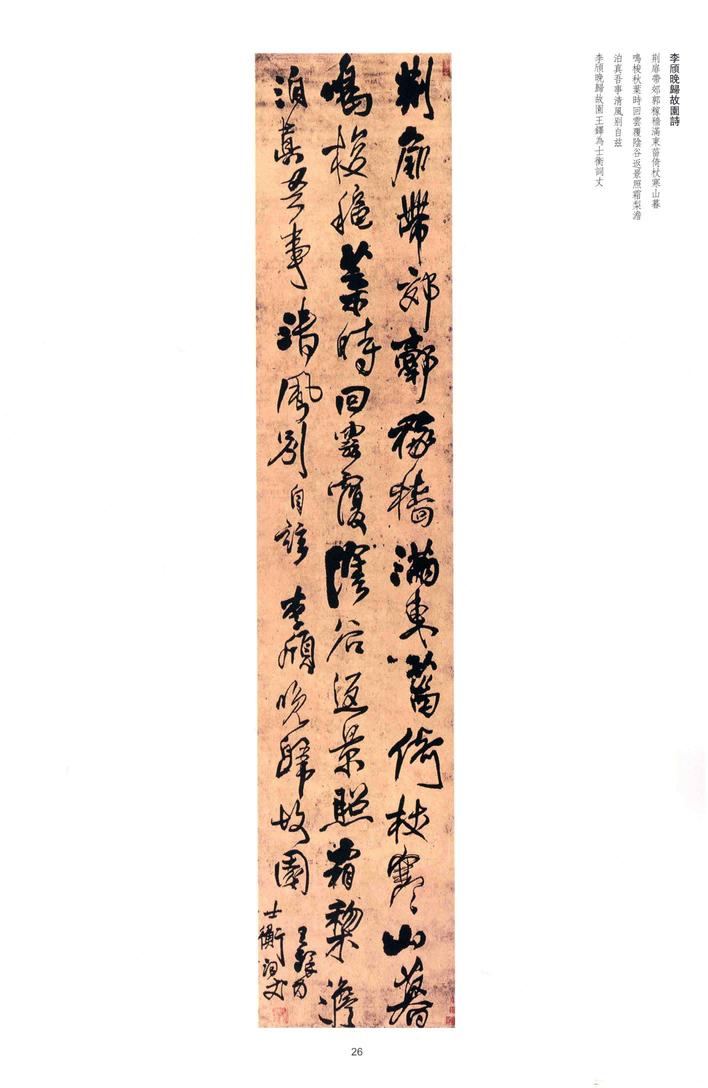 李頎晚歸故園詩
荊扉帶郊郭稼穡滿東菑倚杖寒山暮
鳴梭秋葉時回雲覆陰谷返景照霜梨澹
泊真吾事清風別自茲
李頎晚歸故園王鐸為士衡詞丈
荊扉帶郊郭稼穡滿東菑倚杖寒山暮
鳴梭穐葉時回雲覆陰谷返景照霜棃澹
泊真吾事清風別自茲李頎晚歸故園
王鐸為
士衡詞丈
26